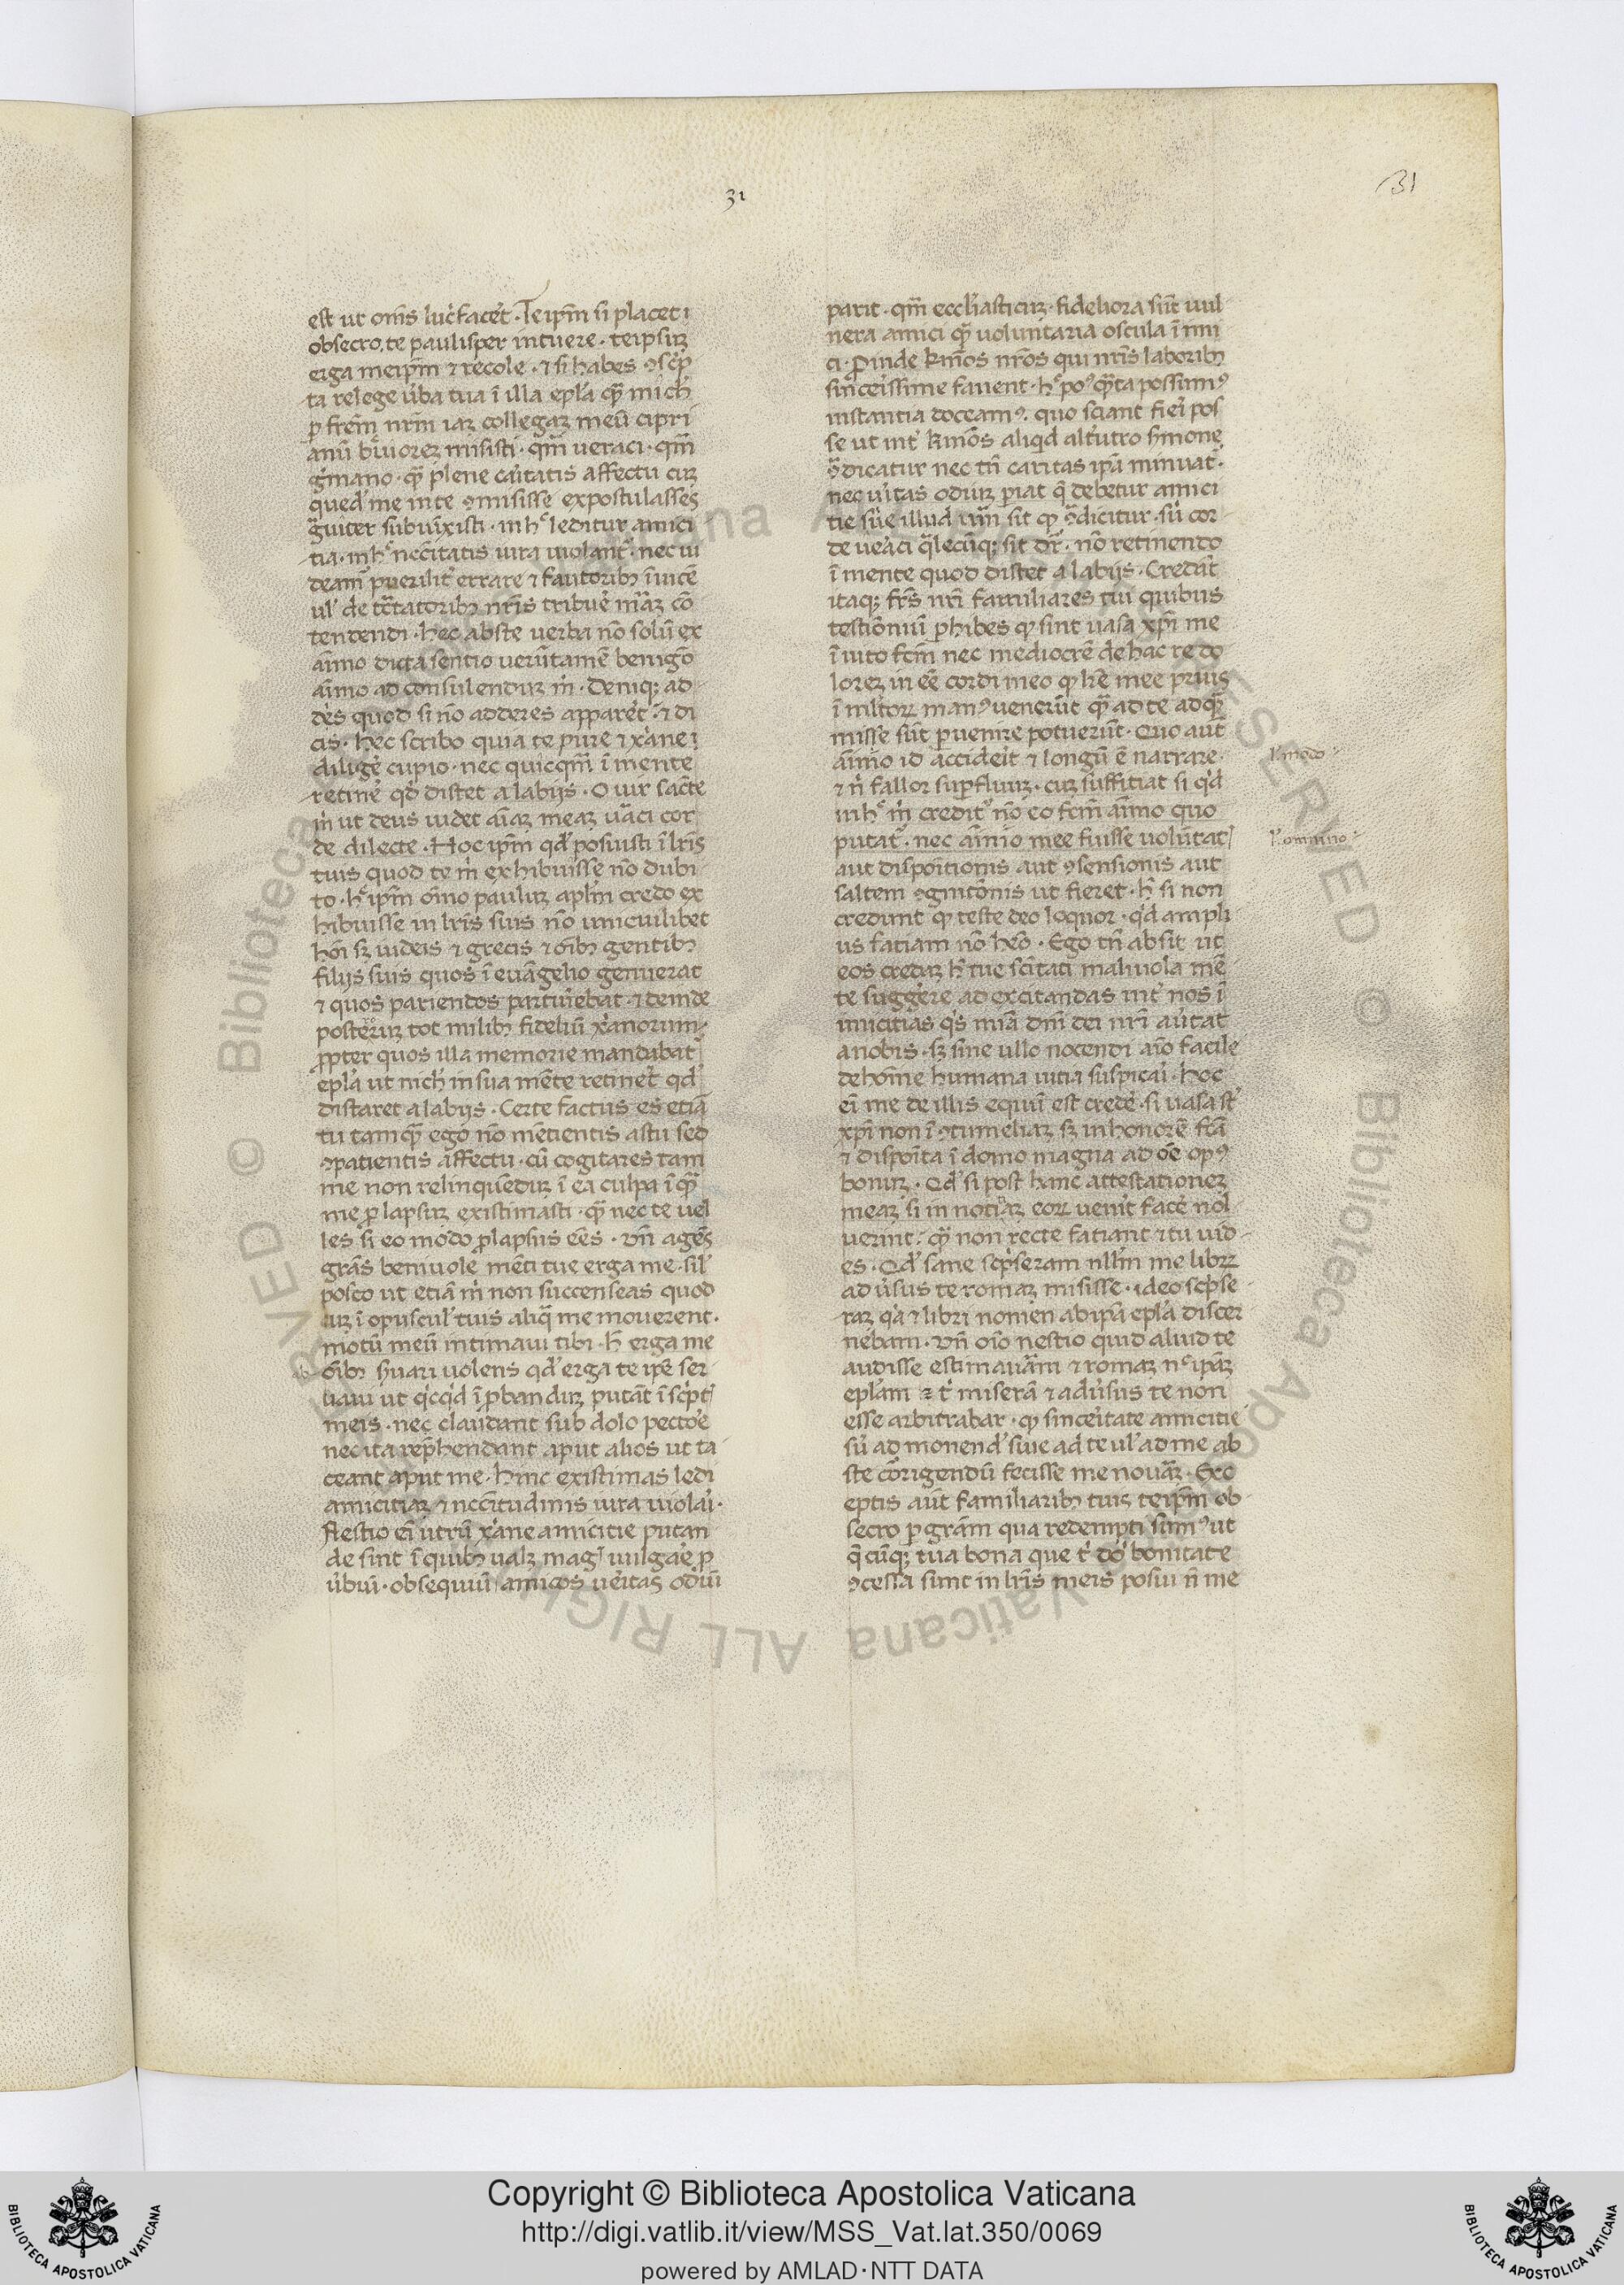 31
31
est ut om̅s luc̓facet̓. Teipm̅ si placet ı
obsecro, te paulisper intuere. teipsuꝫ
erga meipm̅ ⁊ recole. ⁊ si habes ꝯsc̓p
ta relege u̓ba tua ı̅ illa epl̓a qua̅ mich̓
ꝑ fre̅m nr̅m iaꝫ collegaꝫ meu̅ cipri
anu̅ breuioreꝫ misisti. qm̅ ueraci. qm̅
g̓mano. qm̅ plene ca̓itatis affectu cuꝫ
qued̓ me in te ꝯmisisse expostulasses
g̓uiter subiu̅xisti. in hͨ leditur amici
tia. in hͨ necc̓itatis iura uiolant᷑. nec ui
deam᷑ puerilit̓ errare ⁊ fautorib ı̅uice̅
ul̓ de tc̅tatorib nr̅is tribue̓ ma̅ꝫ co̅
tendendi. hec abste uerba no̅ solu̅ ex
ai̅mo dicta sentio ueru̅tame̅ benigo̅
ai̅mo ad consulenduꝫ m̓. deniqꝫ ad
des quod si no̅ adderes apparet̓. ⁊ di
cis. hec scribo quia te pure ⁊ x̓ane ı
dilige̓ cupio. nec quicqm̅ ı̅ mente
retine̓ qd̓ distet a labijs. O uir sac̅te
m̓ ut deus uidet ai̅aꝫ meaꝫ ua̅ci cor
de dilecte. Hoc ipm̅ qd̓ posuisti ı̅ lr̅is
tuis quod te m̓ exhibuisse no̅ dubi
to. hͨ ipm̅ oı̅no pauluꝫ apl̅m credo ex
hibuisse in lr̅is suis no̅ unicuilibet
hoı̅ sꝫ iudeis ⁊ grecis ⁊ oı̅b gentib
filijs suis quos ı̅ eua̅gelio genuerat
⁊ quos pariendos parturiebat. ⁊ deinde
posteroꝝ tot milib fideliu̅ x̓anorum.
ꝓpter quos illa memorie mandabat᷑
epl̓a ut nich̓ in sua me̅te retinet̓ qd̓
distaret a labijs. Certe factus es etia̅
tu tamqua̅ ego no̅ me̅tientis astu sed
ꝯpatientis affectu. cu̅ cogitares tam
me non relinque̅duꝫ ı̅ ea culpa ı̅ qua̅
me ꝓlapsuꝫ existimasti. qua̅ nec te uel
les si eo modo ꝓlapsus ee̅s. vn̅ age̅s
gra̅s beniuole me̅ti tue erga me. sil̓
posco ut etia̅ m̓ non succenseas quod
cuꝫ ı̅ opuscul̓ tuis aliq̅ me mouerent.
motu̅ meu̅ intimaui tibi. h̅ erga me
ab oı̅b s̓uari uolens qd̓ erga te ipe̅ ser
uaui ut q̓cq̓d ı̅ꝓbanduꝫ puta̅t ı̅ sc̓pt᷑
meis. nec claudant sub dolo pectoe̓
nec ita rep̅hendant aput alios ut ta
ceant aput me. hinc existimas ledi
amicitiaꝫ ⁊ necc̅itudinis iura uiolai̓.
Nestio ei̅ utru̅ x̓ane amicitie putan
de sint ı̅ quib ualꝫ mag᷑ uulgae̓ ꝓ
u̓biu̅. obsequiu̅ amicos ue̓itas odiu̅
parit. qm̅ eccl̓iasticuꝫ. fideliora su̅t uul
nera amici qua̅ uoluntaria oscula ı̅imi
ci. Proinde kmo̅s nr̅os qui nr̅is laborib
sinceı̓ssime fauent. hͨ po᷒ qua̅ta possum᷒
instantia doceam᷒. quo sciant fiei̓ pos
se ut int̓ kmo̅s aliq̓d alt̓utro s̓mone
ꝯ̅dicatur nec tn̅ caritas ipa̅ minuat᷑.
nec ui̓tas odiuꝫ pariat q̅ debetur amici
tie siue illud uı̅m sit qͦ ꝯ̅dicitur. su̓ cor
de uea̓ci q̅lecu̅qꝫ sit dr̅. no̅ retinendo
ı̅ mente quod distet a labijs. Creda̓t
itaqꝫ fr̅s nr̅i familiares tui quibus
testio̅niu̅ phibes qͦ sint uasa xp̅i me
ı̅uito fc̅m nec mediocre̅ de hac re do
loreꝫ in ee̅ cordi meo qͦ lr̅e mee prius
ı̅ mltoꝝ man᷒ ueneru̅t qua̅ ad te ad que̅
misse su̅t puenire potuerunt. Quo aut̅
l̓ modo
ai̅mo id accideı̓t ⁊ longu̅ e̅ narrare.
⁊ n̓ fallor sup̅fluuꝫ. cuꝫ suffitiat si q̓d
in hͨ m̓ credit᷑ no̅ eo fc̅m ai̅mo quo
putat᷑. nec ai̅mio mee fuisse uolu̅tat᷑
l̓ omnino
aut dispoı̅tionis aut ꝯsensionis aut
saltem ꝯgnito̅nis ut fieret. h̅ si non
credunt qͦ teste deo loquor. q̓d ampli
us fatiam no̅ heo̅. Ego tn̅ absit ut
eos credaꝫ h̅ tue sc̅itati maliuola me̅
te sugge̓re ad excitandas int̓ nos ı̅
imicitias q̓s mia̅ dn̅i dei nr̅i aue̓tat
a nobis. sꝫ sine ullo nocendi aı̅o facile
de hoı̅ne humana uitia suspicai̓. Hoc
ei̅ me de illis equu̅ est crede̓. si uasa st̅
xp̅i non ı̅ ꝯtumeliaꝫ sꝫ in honore̅ fc̅a
⁊ dispoı̅ta ı̅ domo magna ad oe̅ op᷒
bonuꝫ. Qd̓ si post hanc attestationeꝫ
meaꝫ si in notiaꝫ eoꝝ uenı̓t face̓ nol
uerint. qua̅ non recte fatiant ⁊ tu uid
es. Qd̓ sane sc̓pseram nll̅m me libꝝ
ad u̓sus te romaꝫ misisse. ideo sc̓pse
raꝫ q̓a ⁊ libri nomen ab ipa̅ epl̓a discer
nebam. vn̅ oı̅o nestio quid aliud te
audisse estimaua̅m ⁊ romaꝫ nͨ ipa̅ꝫ
epl̓am ⁊ t̓ misera̅ ⁊ adu̓sus te non
esse arbitrabar. qͦ sinceı̓tate amicitie
su̓ ad monend̓ siue ad te ul̓ ad me ab
ste co̅rigendu̅ fecisse me noua̅ꝫ. Exc
eptis aut̅ familiarib tuis teipm̅ ob
secro ꝑ gra̅m qua redempti sum᷒ ut
q̅cu̅qꝫ tua bona que t̓ do̓ bonitate
ꝯcessa sunt in lr̅is meis posui n̅ me
Copyright © Biblioteca Apostolica Vaticana
http://digi.vatlib.it/view/MSS_Vat.lat.350/0069
powered by AMLAD·NTT DATA
BIBLIOTECA APOSTOLICA VATICANA
BIBLIOTECA APOSTOLICA VATICANA